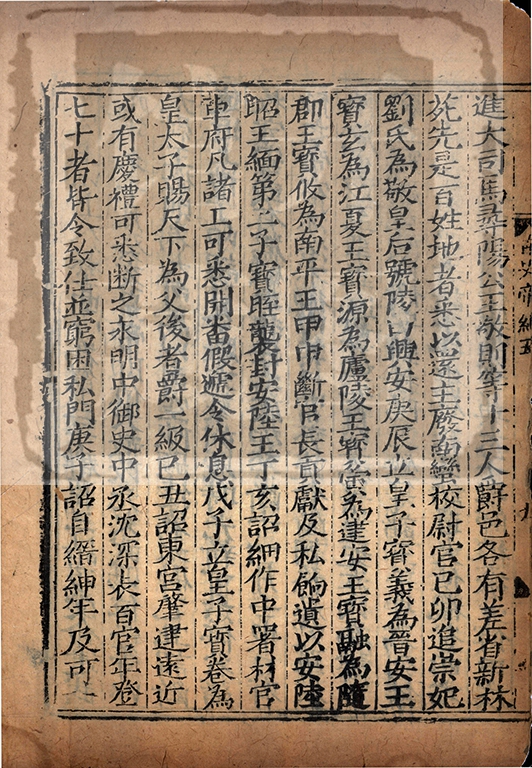 進大司馬尋陽公王敬則等十三人爵邑各有差省新林
苑先是百姓地者悉以還主廢南蠻校尉官己卯追崇妃
劉氏為敬皇后號陵曰興安庚辰立皇子寳義為晉安王
寳玄為江夏王寳源為廬陵王寳夤為建安王寳融為隨
郡王寳攸為南平王甲申斷官長貢獻及私餉遺以安陸
昭王緬第二子寳晊襲封安陸王丁亥詔細作中署材官
車府凡諸工可悉開番假遞令休息戊子立皇子寳卷為
皇太子賜天下為父後者爵一級己丑詔東宮肇建遠近
或有慶禮可悉斷之永明中御史中丞沈深表百官年登
七十者皆令致仕並窮困私門庚子詔自縉紳年及可一